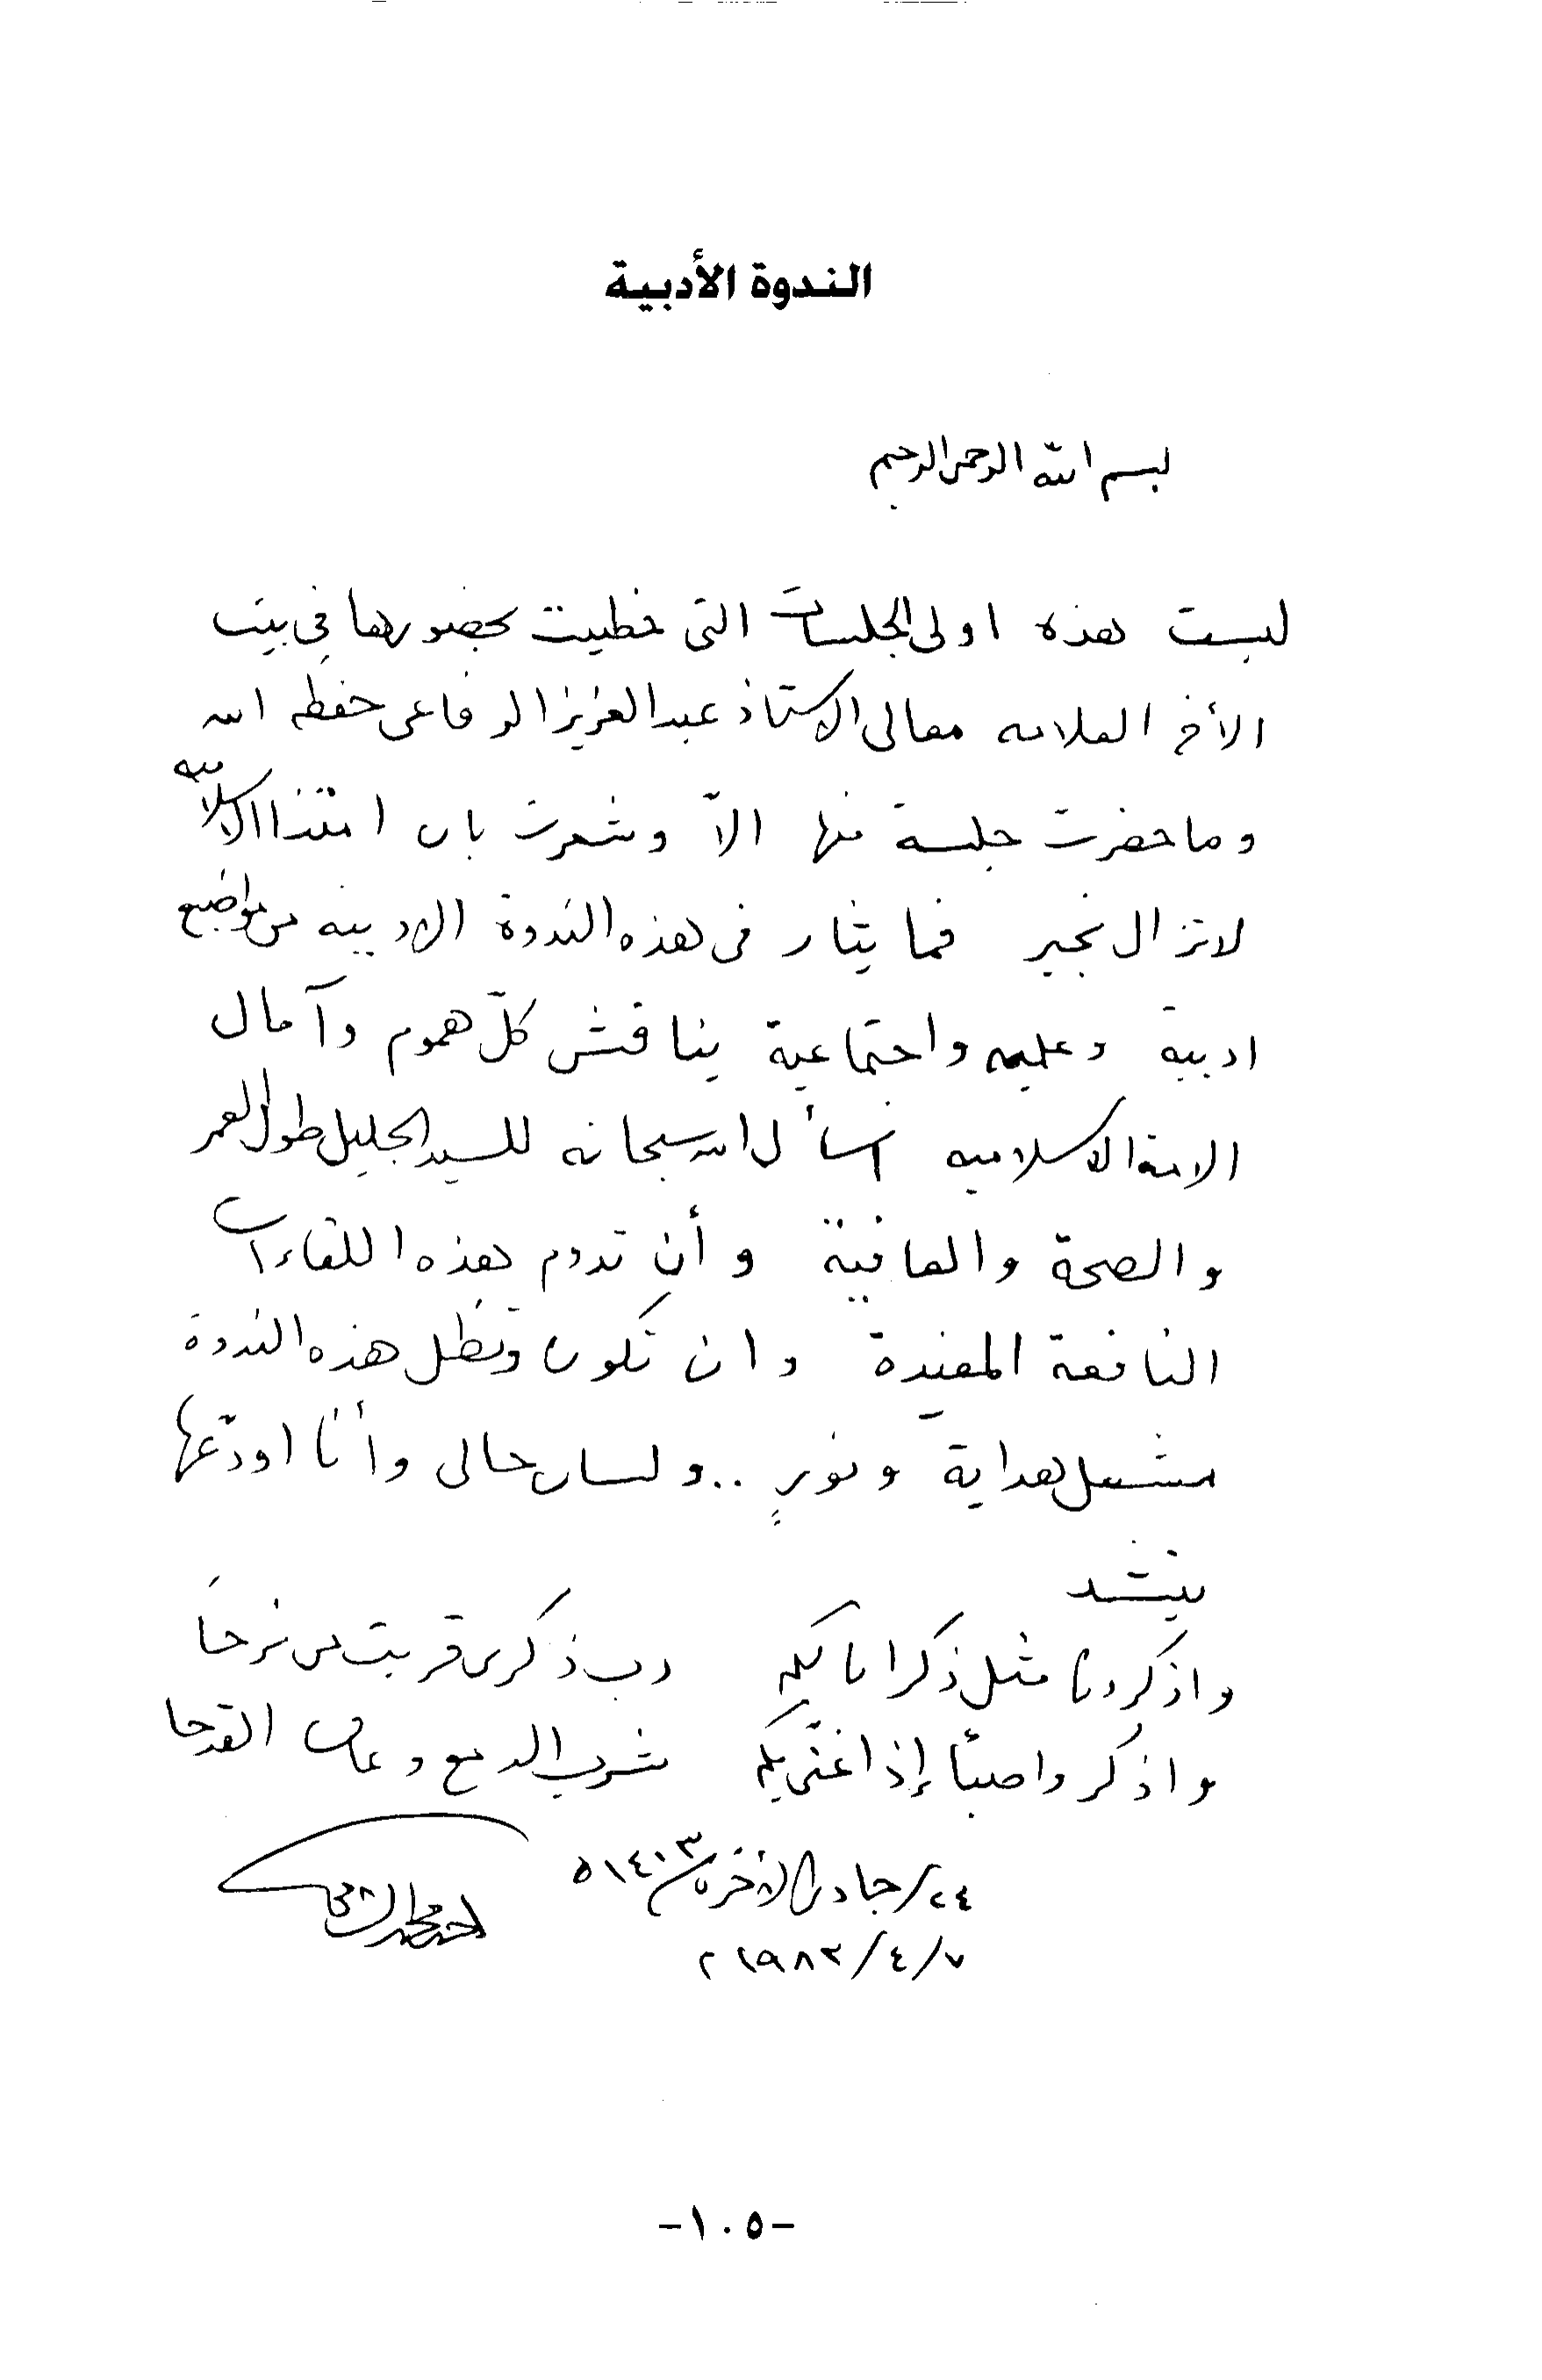 الندوة الأدبية
بسم الله الرحمن الرحيم
ليست هذه اولى الجلسات التى حظيت بحضورها في بيت
الأخ العلامه معالى الاستاذ عبد العزيز الرفاعى حفظه الله
وما حضرت جلسة منها الاّ وشعرت بان امتنا الاسلاميه
لا تزال بخير فما يثار فى هذه الندوة الادبيه من مواضيع
ادبية وعلميه واجتماعية يناقش كلّ هموم وآمال
الامة الاسلاميه اسأل الله سبحانه للسيد الجليل طول العمر
والصحة والعافية وأن تدوم هذه اللقاءات
النافعة المفيدة وان تكون وتظل هذه الندوة
مشعل هداية ونورٍ .. ولسان حالى وأنا اودّعها
ينشد
واذكرونا مثل ذكرانا لكم رب ذكرى قربت من نزحا
واذكروا صبًا إذا غنّى بكم شرب الدمع وعاف القدحا
٢٤/جمادى الآخره/١٤٠٣ه
٧/٤/١٩٨٣م
احمد محمد
-١٠٥-